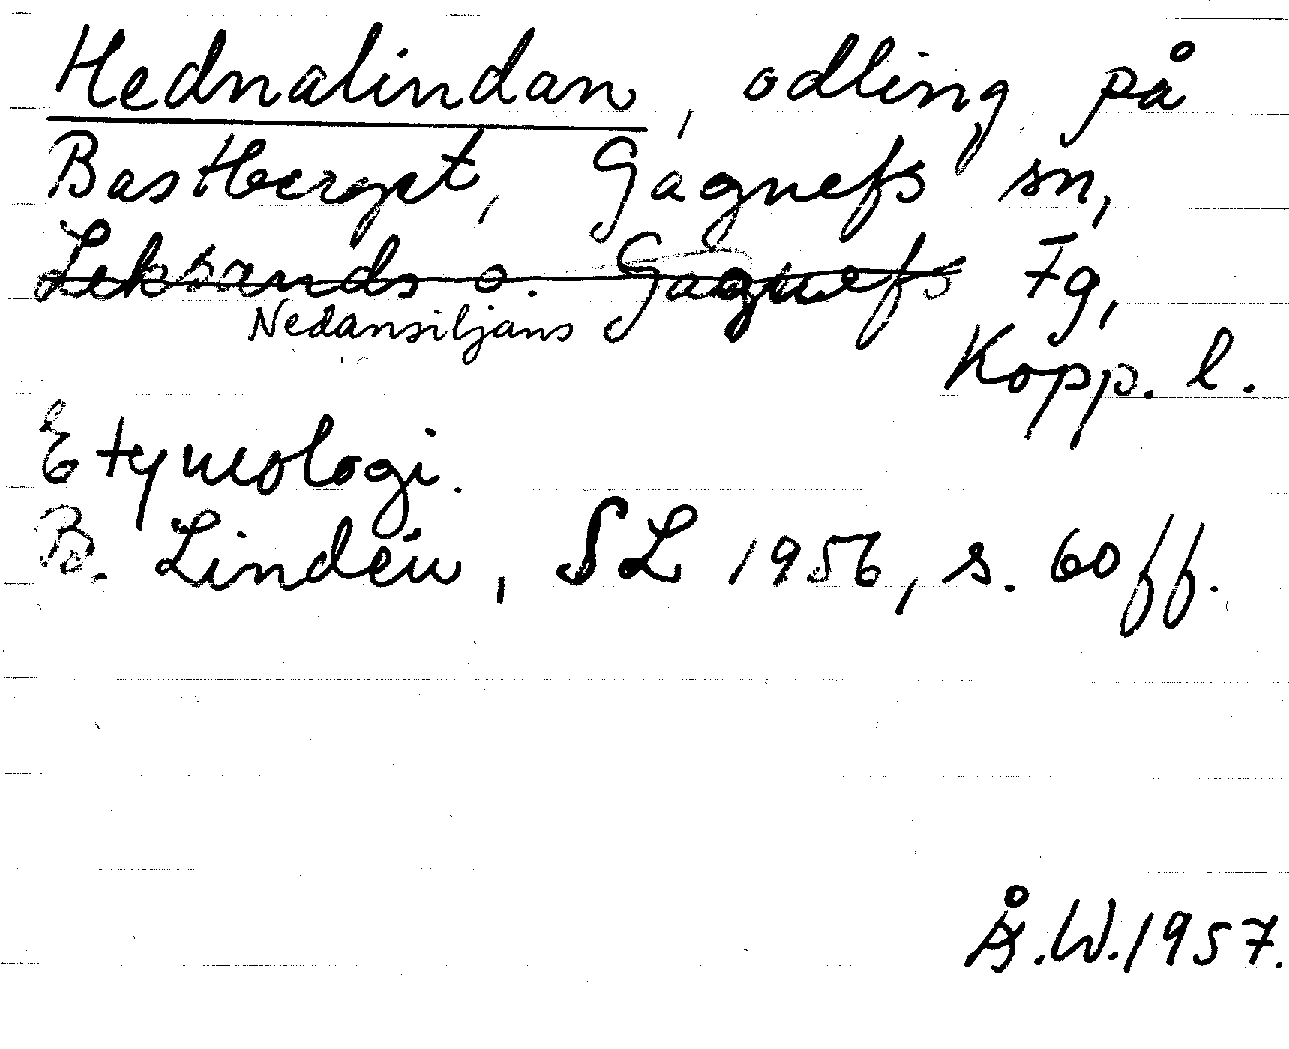 Hednalindan, odling på
Bastberget, Gagnefs sn,
Leksands o. Gagnefs Fg,
Nedansiljans
Kopp. l.
Etymologi.
B. Lindén, SL 1956, s. 60 ff.
Å.W. 1957.